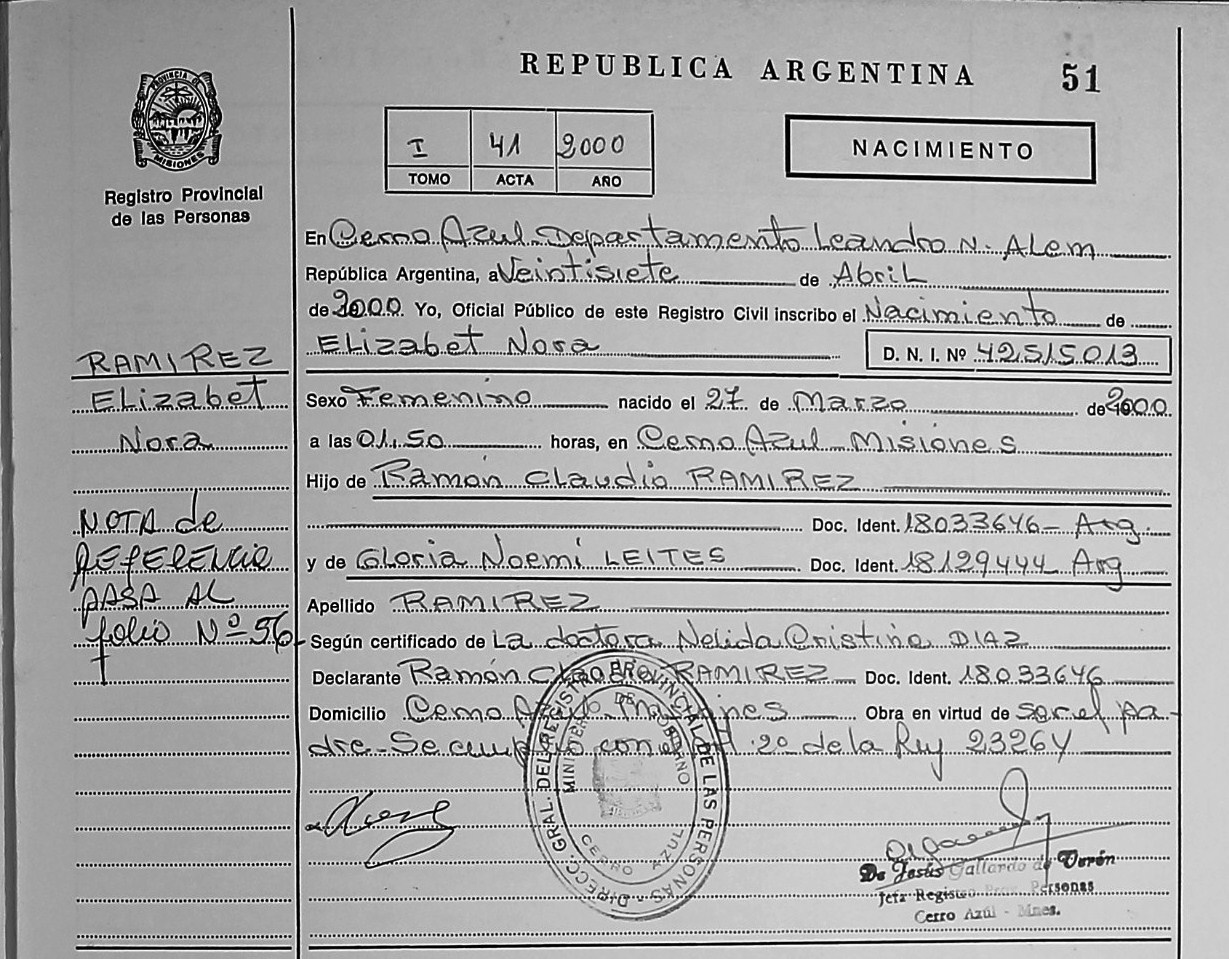 REPUBLICA ARGENTINA 51
PROVINCIA DE MISIONES
Registro Provincial
de las Personas
I 41 2000
TOMO ACTA AÑO
NACIMIENTO
En Cerro Azul Departamento Leandro N. ALem
República Argentina, a Veintisiete de AbriL
de 2000. Yo, Oficial Público de este Registro Civil inscribo el Nacimiento de
ELizabet Nora D. N. I. Nº 42515013
RAMIREZ
ELizabet
Nora
Sexo Femenino nacido el 27 de Marzo de 2000
a las 01.50 horas, en Cerro Azul Misiones
Hijo de Ramón Claudio RAMIREZ
Doc. Ident. 18033646- Arg.
y de Gloria Noemí LEITES Doc. Ident. 18129444 Arg
Apellido RAMIREZ
NOTA de
REFERENCIA
PASA AL
folio Nº 56
Según certificado de La doctora Nelida Cristina DIAZ
Declarante Ramón Claudio RAMIREZ Doc. Ident. 18033646
Domicilio Cerro Azul Misiones Obra en virtud de ser el pa-
dre-Se cumplio con el 2º de la Ley 23264
DIRECC. GRAL. DEL REGISTRO PROVINCIAL DE LAS PERSONAS
MINISTERIO DE GOBIERNO
CERRO AZUL
De Jesús Gallardo de Verón
Jefa Registro Prov. Personas
Cerro Azúl - Mnes.